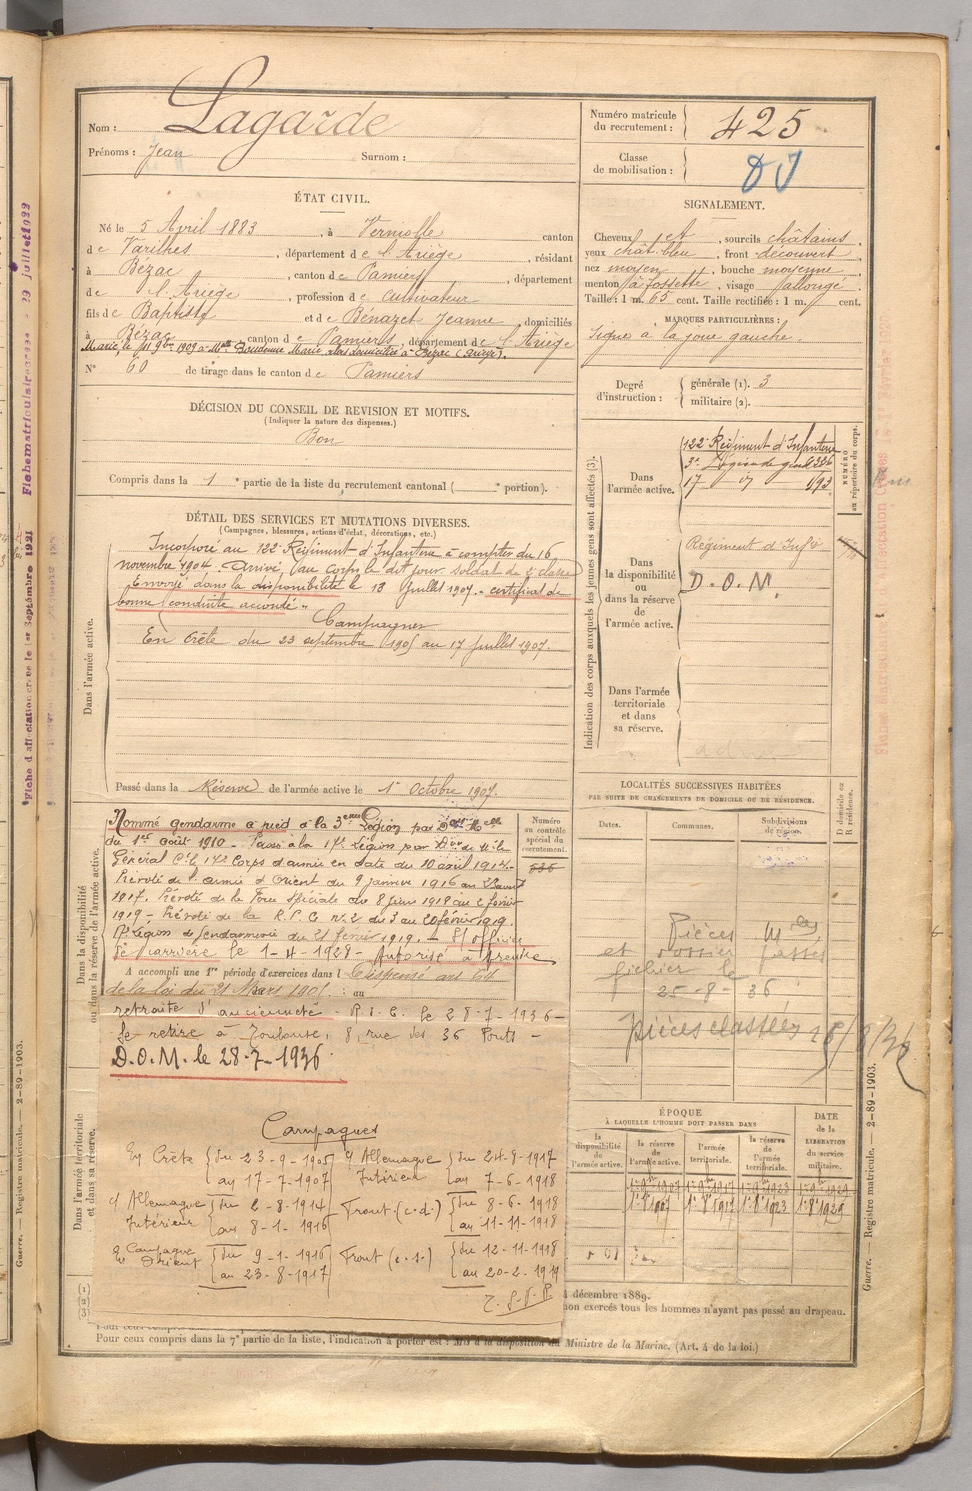 Nom : Lagarde
Prénoms : Jean Surnom :
Numéro matricule du recrutement : 425
Classe de mobilisation :
ÉTAT CIVIL.
Né le 5 Avril 1883, à Verniolle canton
de Varilhes, département de l'Ariège, résidant
à Bézac, canton de Pamiers, département
de l'Ariège, profession de cultivateur
fils de Baptiste et de Bénazet Jeanne, domiciliés
à Bézac, canton de Pamiers, département de l'Ariège
Marié le 11 9bre 1909 à Melle Boudenne Marie alors domiciliée à Bézac (Ariège).
N° 60 de tirage dans le canton de Pamiers
SIGNALEMENT.
Cheveux et, sourcils châtains,
yeux chât. bleu, front découvert,
nez moyen, bouche moyenne,
menton à fossette, visage allongé.
Taille : 1 m. 65 cent. Taille rectifiée : 1 m. cent.
MARQUES PARTICULIÈRES :
Signe à la joue gauche.
Degré d'instruction :
générale (1). 3
militaire (2).
DÉCISION DU CONSEIL DE REVISION ET MOTIFS.
(Indiquer la nature des dispenses.)
Bon
Compris dans la 1e partie de la liste du recrutement cantonal ( e portion).
DÉTAIL DES SERVICES ET MUTATIONS DIVERSES.
(Campagnes, blessures, actions d'éclat, décorations, etc.)
Dans l'armée active.
Incorporé au 122e Régiment d'Infanterie à compter du 16
novembre 1904. Arrivé au corps le dit jour soldat de 2e classe
Envoyé dans la disponibilité le 13 Juillet 1907. certificat de
bonne conduite accordé.
Campagnes
En Crête du 23 septembre 1905 au 17 juillet 1907.
Passé dans la Réserve de l'armée active le 1er Octobre 1907.
Indication des corps auxquels les jeunes gens sont affectés (3).
NUMÉRO au répertoire du corps.
Dans l'armée active.
122e Régiment d'Infanterie
3e Légion de gend
17
Dans la disponibilité ou dans la réserve de l'armée active.
Régiment d'Infie
D.O.M.
Dans l'armée territoriale et dans sa réserve.
Dans la disponibilité ou dans la réserve de l'armée active.
Numéro au contrôle spécial du recrutement.
Nommé gendarme à pied à la 3ème Légion par
du 1er août 1910 - Passé à la 17e Légion par
Général Ct le 17e Corps d'armée en date du 10 avril 1914.
de l'armée d'Orient du 9 janvier 1916 au
1917. de la Force Spéciale du 8 juin 1918 au 2 février
1919 - de la R.P.G. n° 2 du 3 au 20 février 1919.
17e Légion de Gendarmerie du 21 février 1919. -
de carrière le 1-4-1928 - Autorisé à prendre
A accompli une 1re période d'exercices dans l Dispensé art.
de la loi du 21 Mars 1905. : au
retraite d'ancienneté - le 28-7-1936 -
Se retire à Toulouse, 8, rue des 36 Ponts -
D.O.M. le 28-7-1936
Campagnes
En Crète du 23-9-1905
au 17-7-1907
C Allemagne Intérieur du 2-8-1914
au 8-1-1916
C Campagne Orient du 9-1-1916
au 23-8-1917
C Allemagne Intérieur du 24-8-1917
au 7-6-1918
Front (c.d.) du 8-6-1918
au 11-11-1918
Front (c.s.) du 12-11-1918
au 20-2-1919
Dans l'armée territoriale et dans sa réserve.
LOCALITÉS SUCCESSIVES HABITÉES
PAR SUITE DE CHANGEMENTS DE DOMICILE OU DE RÉSIDENCE.
Dates. Communes. Subdivisions de région.
D domicile ou R résidence.
Pièces
et dossier passés
fichier le
25-8-36
pièces classées
ÉPOQUE
À LAQUELLE L'HOMME DOIT PASSER DANS
la disponibilité de l'armée active.
la réserve de l'armée active.
l'armée territoriale.
la réserve de l'armée territoriale.
DATE de la LIBÉRATION du service militaire.
(1)
(2)
(3)
4 décembre 1889.
non exercés tous les hommes n'ayant pas passé au drapeau.
Pour ceux compris dans la 7e partie de la liste, l'indication à porter est : Mis à la disposition du Ministre de la Marine. (Art. 4 de la loi.)
Guerre. — Registre matricule. — 2-89-1903.
Guerre. — Registre matricule. — 2-89-1903.
Fiche d'affectation créée le 1er Septembre 1921
Fiche matriculaire créée 29 juillet 1922